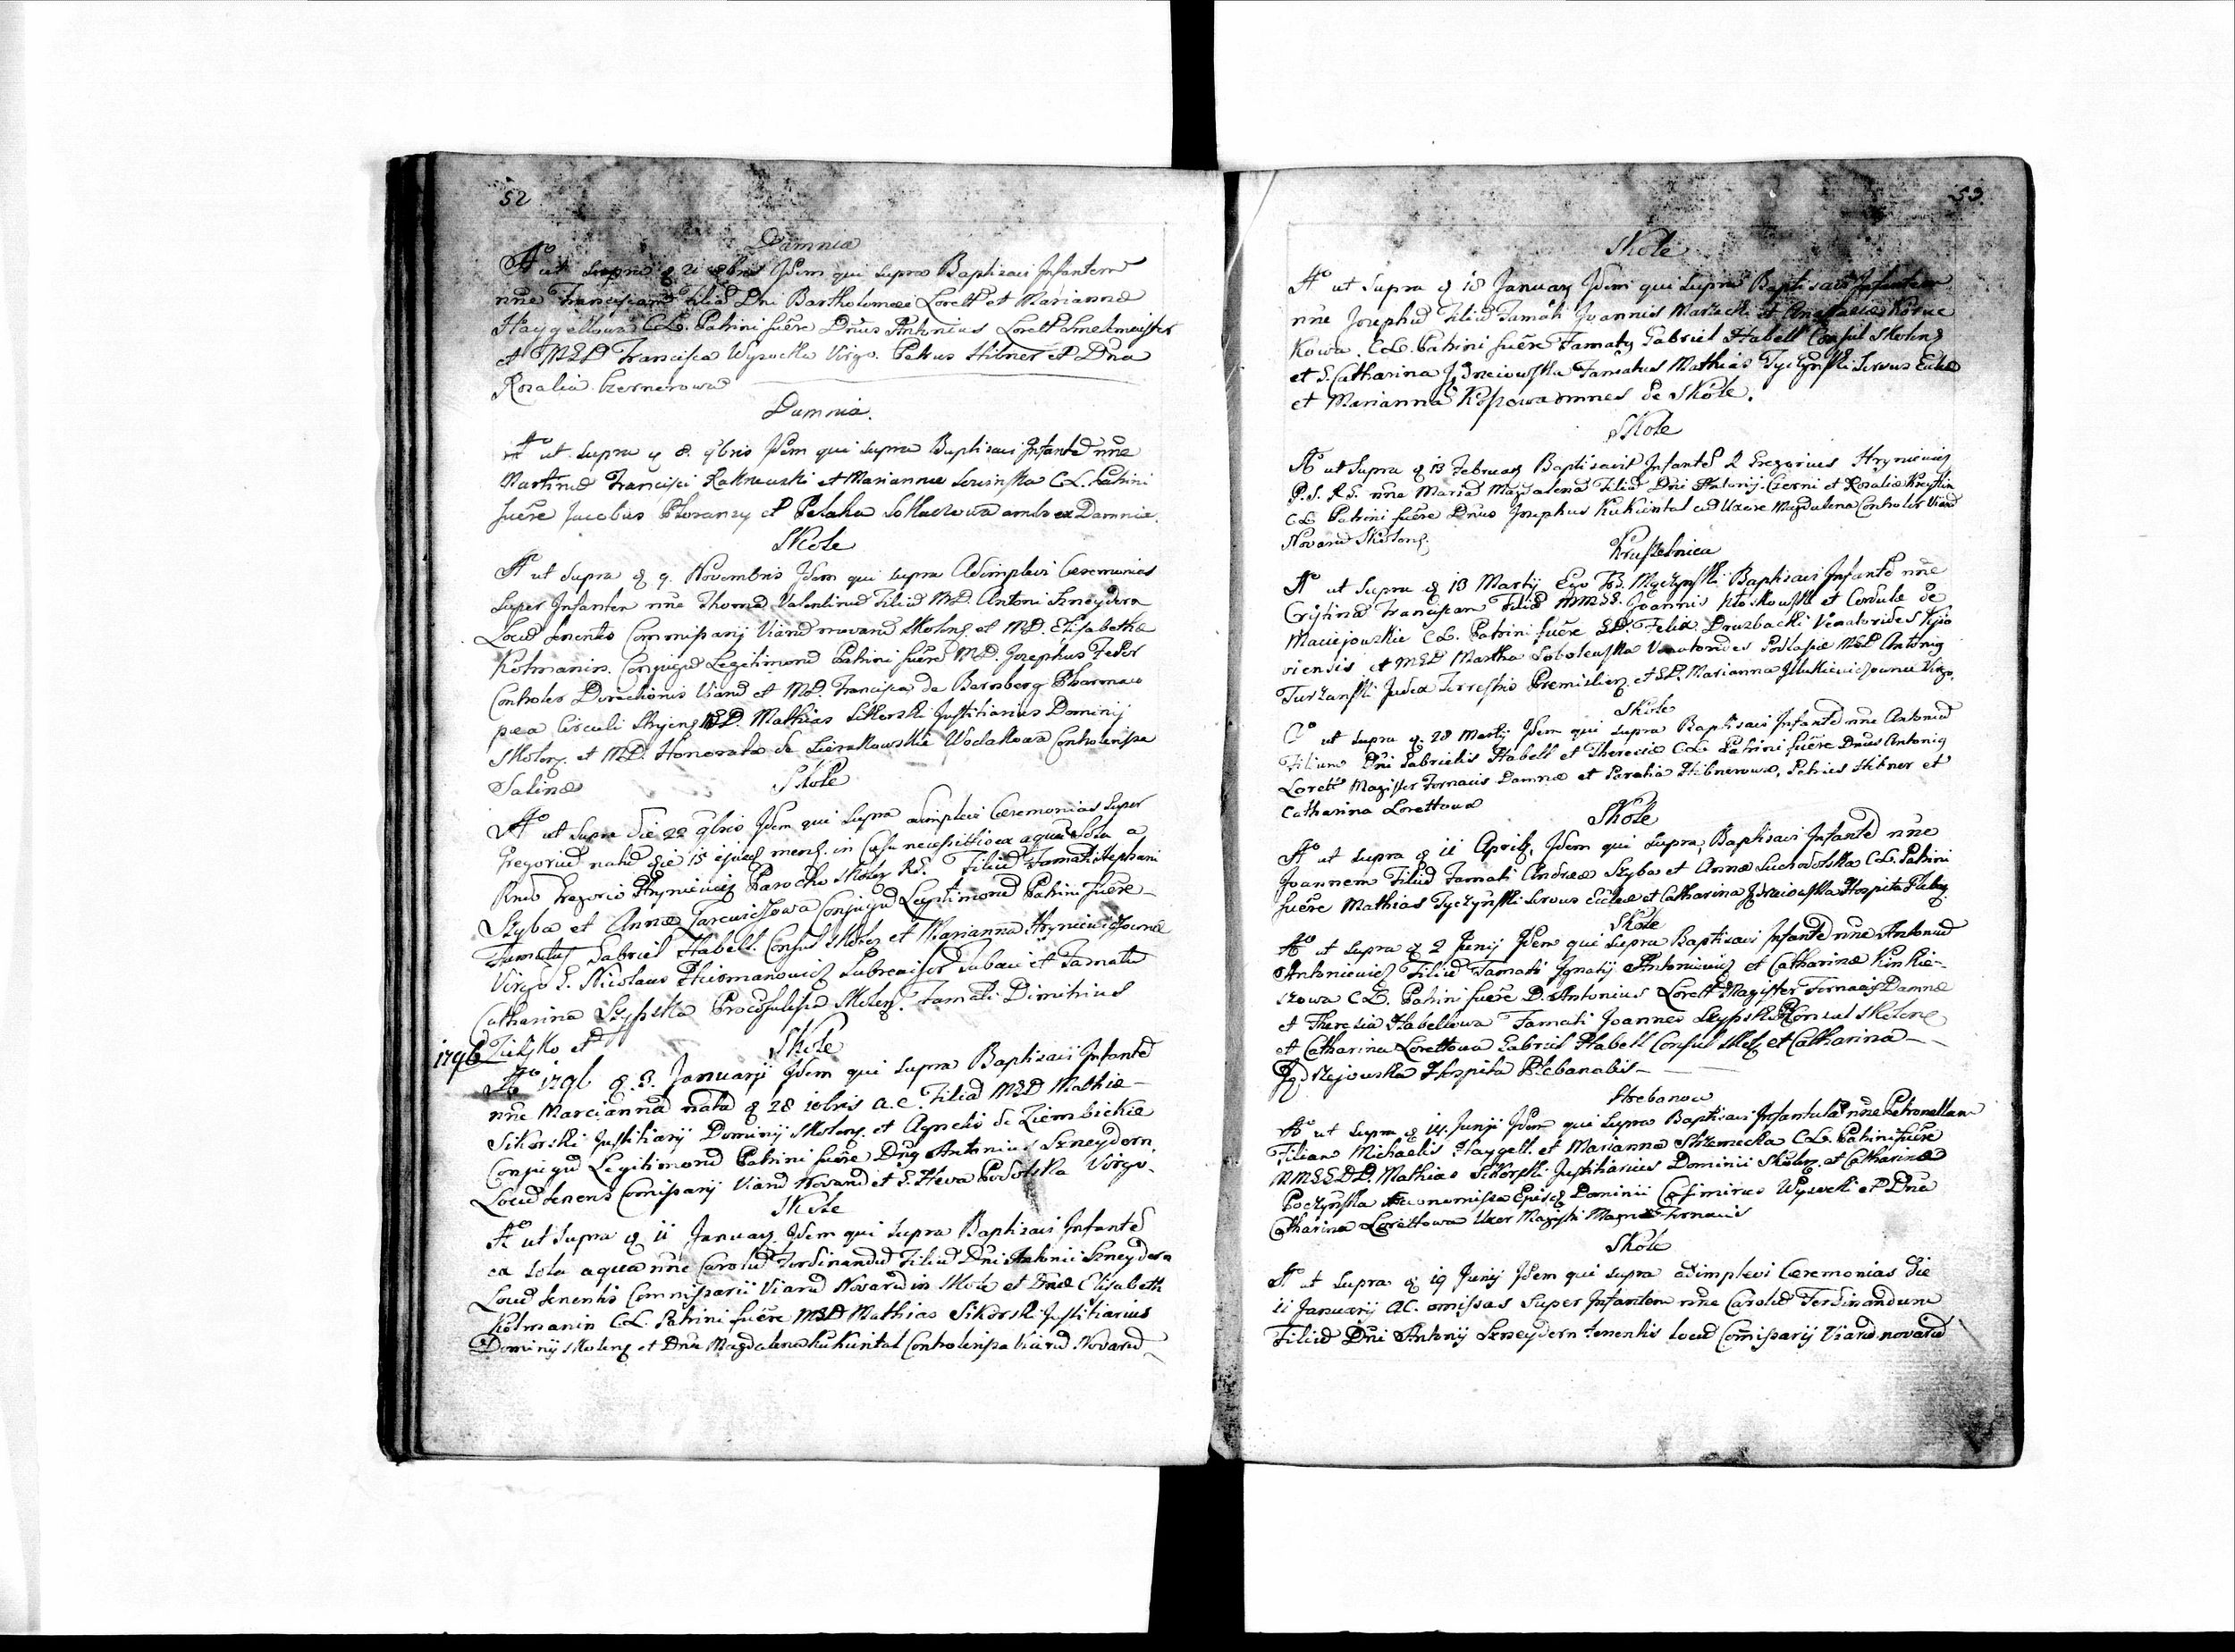 52
Damnia
Aº ut supra 21 8bris Idem qui supra Baptisavi Infantem
nne Franciscam Filiã Dni Bartholomaei Lorett et Marianna
Haygellowa C.L. Patrini fuêre Dnus Antonius Lorett
et MGD Francisca Wysocka Virgo. Petrus Hibner et Dna
Rozalia Czernerowa
Damnia.
Aº ut supra 8. 9bris Idem qui supra Baptisavi Infantê nne
Martinũ Francisci et Marianna C.L. Patrini
fuêre Jacobus et Pelaha ambo ex Damnia.
Skole
Aº ut supra 9. Novembris Idem qui supra Adimplevi Ceremonias
super Infantem nne Thomã Valentinũ Filiũ MD. Antoni Szneydera
Locũ tenentis Commissarij Viarũ novarũ Skolens et MD. Elisabetha
Kolmanin Conjugũ Legitimorũ Patrini fuêre MD. Josephus Feder
Controlor Directionis Viarũ et MD. Francisca de Bernberg Pharmaco
paea Circuli Stryens MGD. Mathias Sikorski Justitiarius Dominij
Skolens. et MD. Honorata de Sierakowskie Wodakowa Controlerissa
Salinae
Skole
Aº ut supra die 22 9bris Idem qui supra adimplevi Ceremonias super
Gregoriũ natũ die 15 ejusd mens. in Casu necessitatis ex aqua sola a
Rndo Gregorio Hryniewicz Parocho Skolens R.G. Filiũ Famati Stephani
Szyba et Anna Tarcewiczowa Conjugũ Legitimorũ Patrini fuêre
Famatus Gabriel Habell. Consul Skolens et Marianna Hryniewiczowna
Virgo G. Nicolaus Subrevisor Tabaci et Famata
Catharina Szypska Proconsulissa Skolens. Famati Dimitrius
Zielsko et
1796
Skole
Aº 1796 3. Januarji Idem qui supra Baptisavi Infantê
nne Mariannã natã 28 10bris a.c. Filiã MGD Mathiae
Sikorski Justitiarij Dominij Skolens. et Agnetis de Ziembickie
Conjugũ Legitimorũ Patrini fuêre Dnus Antonius Szneydern
Locũ tenens Comissarij Viarũ Novarũ et G. Heva Podolska Virgo.
Skole
Aº ut supra 11 January. Idem qui supra Baptisavi Infantê
ex sola aqua nne Carolũ Ferdinandũ Filiũ Dni Antonii Szneydera
Locũ tenentis Commissarii Viarũ Novarũ in Skole et Dnae Elisabeth
Kolmanin C.L. Patrini fuêre MGD Mathias Sikorski Justitiarius
Dominij Skolens et Dna Magdalena Kukintal Controlerissa Viarũ Novarũ
53
Skole
Aº ut supra 18 January Idem qui supra Baptisavi Infantem
nne Josephũ Filiũ Famati Joannis et
kowa. C.L. Patrini fuêre Famatus Gabriel Habell Consul Skolens
et G. Catharina Famatus Mathias Tyczynski Servus Eccles
et Marianna omnes de Skole.
Skole
Aº ut supra 13 February Baptisavit Infantê R Gregorius Hryniewicz
P.S. R.G. nne Mariã Magdalenã Filiã Dni Antonij Czerni et Rosalia
C.L. Patrini fuêre Dnus Josephus Kukintal cũ Uxore Magdalena Controlor Viarũ
Novarũ Skolens.
Kruszelnica
Aº ut supra 13 Martij Ego Mączynski Baptisavi Infantê nne
Cristinã Franciscam Filiã Joannis et Cordula de
Maciejowskie C.L. Patrini fuêre GD. Felix Druzbacki Venatorides Kijo
viensis et MGD Martha Sobolewska Venatorides Podlasiae MGD Antonius
Turzanski Judex Terrestris Premisliens. et GD. Marianna Virgo.
Skole
Aº ut supra 28 Martij Idem qui supra Baptisavi Infantê nne Antoniũ
Filium Dni Gabrielis Habell et Theresiae C.L. Patrini fuêre Dnus Antonius
Lorett Magister Fornacis Damnae et Hibnerowa, Petrus Hibner et
Catharina Lorettowa
Skole
Aº ut supra 11 Aprilis. Idem qui supra, Baptisavi Infantê nne
Joannem Filiũ Famati Andreae Szyba et Annae Suchodolska C.L. Patrini
fuêre Mathias Tyczynski Servus Ecclae et Catharina Hospita Plebaniae
Skole
Aº ut supra 2 Junij Idem qui supra Baptisavi Infantê nne Antoniũ
Antoniewicz Filiũ Famati Ignatij Antoniewicz et Catharinae Kinkie-
szowa C.L. Patrini fuêre D. Antonius Lorett Magister Fornacis Damnae
et Theresia Habellowa Famati Joannes Szypski Consul Skolens
et Catharina Lorettowa Gabriel Habell Consul Skolens et Catharina
Jędrzejowska Hospita Plebanalis
Hrebanow
Aº ut supra 14. Junji Idem qui supra Baptisavi Infantulã nne Petronellam
Filiam Michaelis Haygell. et Marianna Strzemecka C.L. Patrini fuêre
MMGGDD. Mathias Sikorski Justitiarius Dominii Skolens. et Catharina
Poczynska Dominii Casimirus Wysocki et Dna
Catharina Lorettowa Uxor Magistri Fornacis
Skole
Aº ut supra 19 Junij Idem qui supra adimplevi Ceremonias die
11 Januarij a.c. omissas super Infantem nne Carolũ Ferdinandum
Filiũ Dni Antonij Szneydern tenentis locũ Comissarij Viarũ novarũ